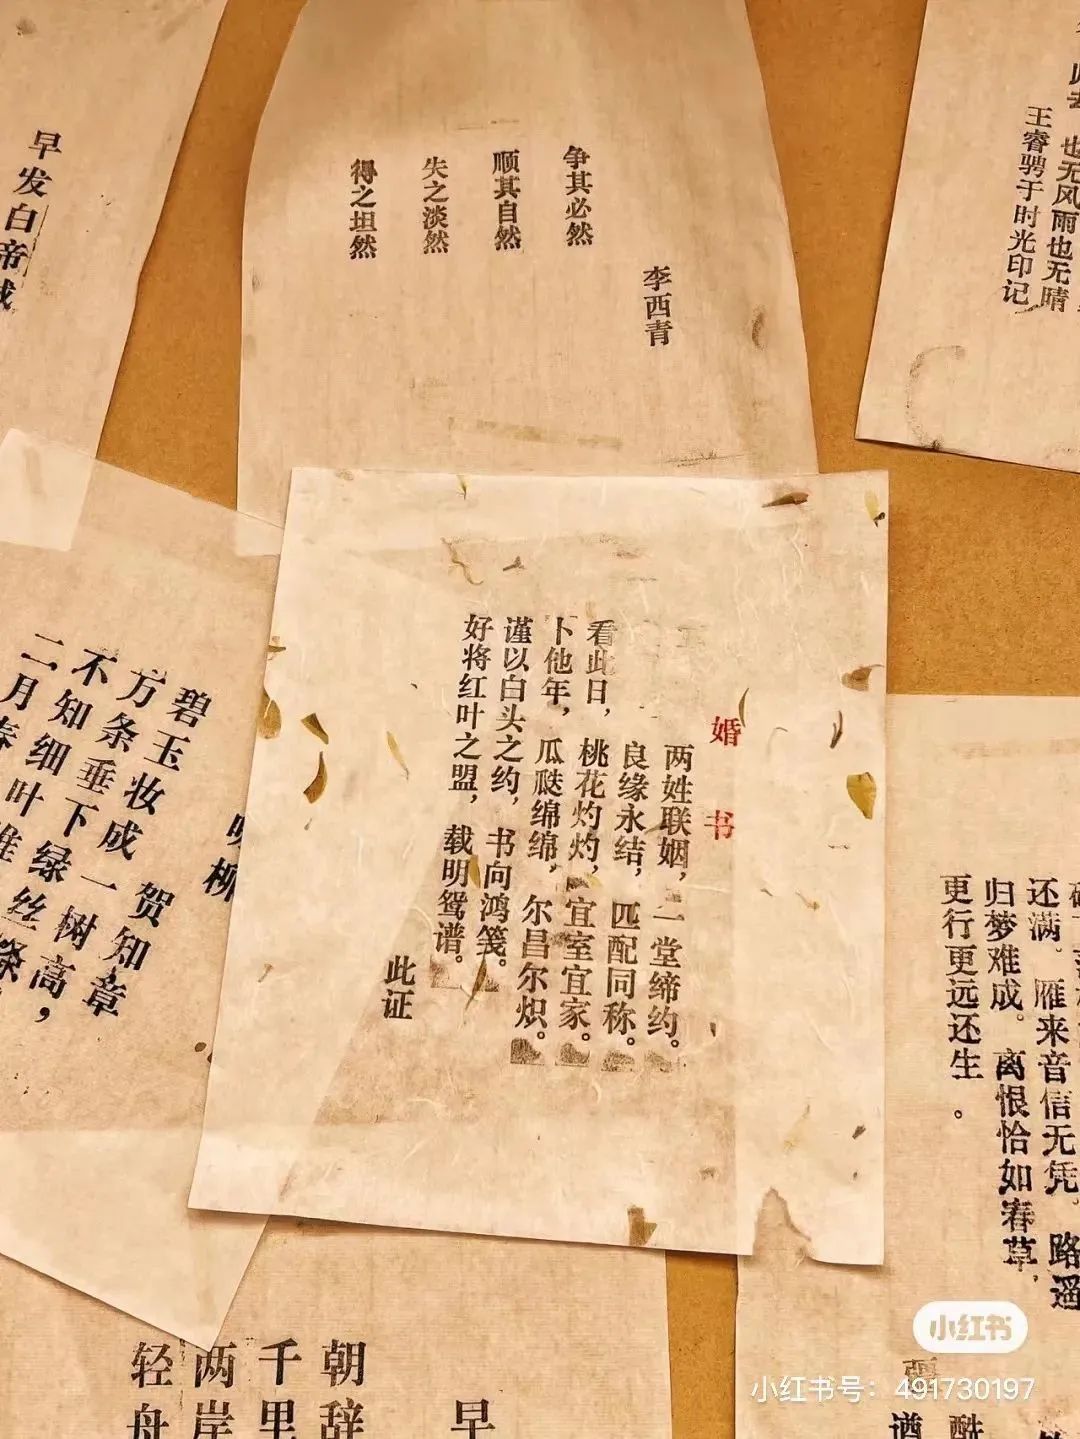 早发白帝城
李西青
争其必然
顺其自然
失之淡然
得之坦然
也无风雨也无晴
王睿骋于时光印记
婚书
两姓联姻，一堂缔约。
良缘永结，匹配同称。
看此日，桃花灼灼，宜室宜家。
卜他年，瓜瓞绵绵，尔昌尔炽。
谨以白头之约，书向鸿笺。
好将红叶之盟，载明鸳谱。
此证
咏柳
贺知章
碧玉妆成一树高，
方条垂下绿丝绦
不知细叶谁
二月春
还满。雁来音信无凭，路遥
归梦难成。离恨恰如春草，
更行更远还生。
早
朝辞
千里
两岸
轻舟
小红书
小红书号：491730197